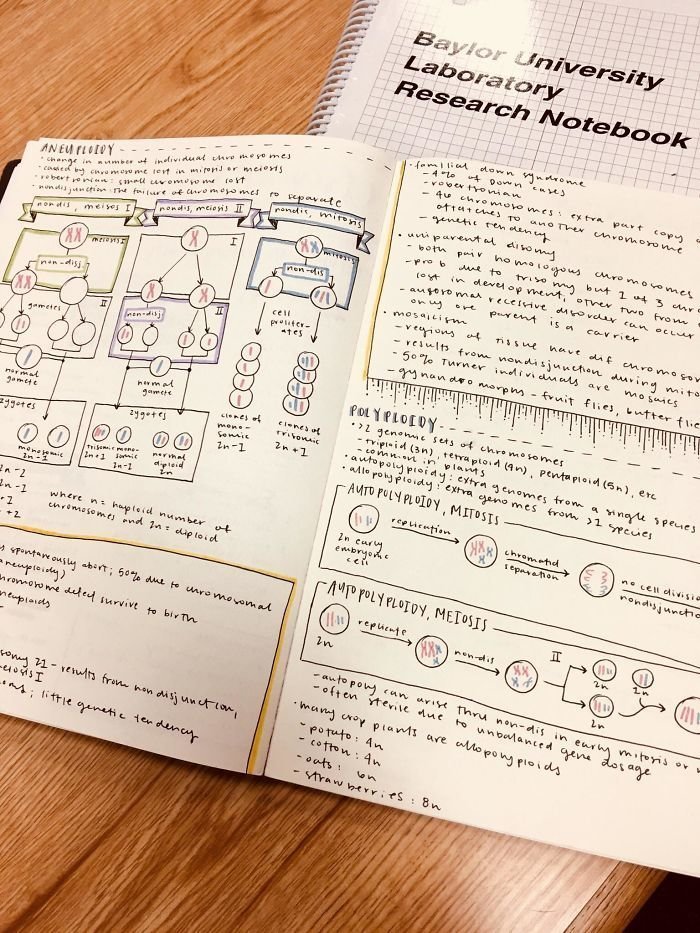 Baylor University
Laboratory
Research Notebook
ANEUPLOIDY
· change in number of individual chromosomes
· caused by chromosome lost in mitosis or meiosis
· robertsonian: small chromosome lost
· nondisjunction: The failure of chromosomes to separate
nondis, meiosis I
nondis, meiosis II
nondis, mitosis
meiosis I
non-disj
gametes
II
normal
gamete
zygotes
monosomic
2n-1
I
II
non-disj
normal
gamete
zygotes
trisomic
2n+1
monosomic
2n-1
normal
diploid
2n
mitosis
non-dis
cell
prolifer-
ates
clones of
mono-
somic
2n-1
clones of
trisomic
2n+1
2n-2
2n-1
+1
+2
where n = haploid number of
chromosomes and 2n = diploid
spontaneously abort; 50% due to chromosomal
aneuploidy)
chromosome defect survive to birth
aneuploids
21 - results from nondisjunction,
meiosis I
; little genetic tendency
· familial down syndrome
- 4% of Down cases
- robertsonian
- 46 chromosomes: extra part copy
attatches to another chromosome
- genetic tendency
· uniparental disomy
- both pair homologous chromosomes
- prob due to trisomy but 1 of 3
lost in development, other two from
- autosomal recessive disorder can occur
only one parent is a carrier
· mosaicism
- regions of tissue have dif
- results from nondisjunction during
- 50% Turner individuals are mosaics
- gynandromorphs - fruit flies, butter
POLYPLOIDY
· >2 genomic sets of chromosomes
- triploid (3n), tetraploid (4n), pentaploid (5n), etc
- common in plants
· autopolyploidy: extra genomes from a single species
· allopolyploidy: extra genomes from >1 species
AUTOPOLYPLOIDY, MITOSIS
2n early
embryonic
cell
replication
chromatid
separation
no cell
AUTOPOLYPLOIDY, MEIOSIS
2n
replicate
non-dis
II
2n
2n
2n
- autopoly can arise thru non-dis in early mitosis or
- often sterile due to unbalanced gene dosage
· many crop plants are allopolyploids
- potato: 4n
- cotton: 4n
- oats: 6n
- strawberries: 8n